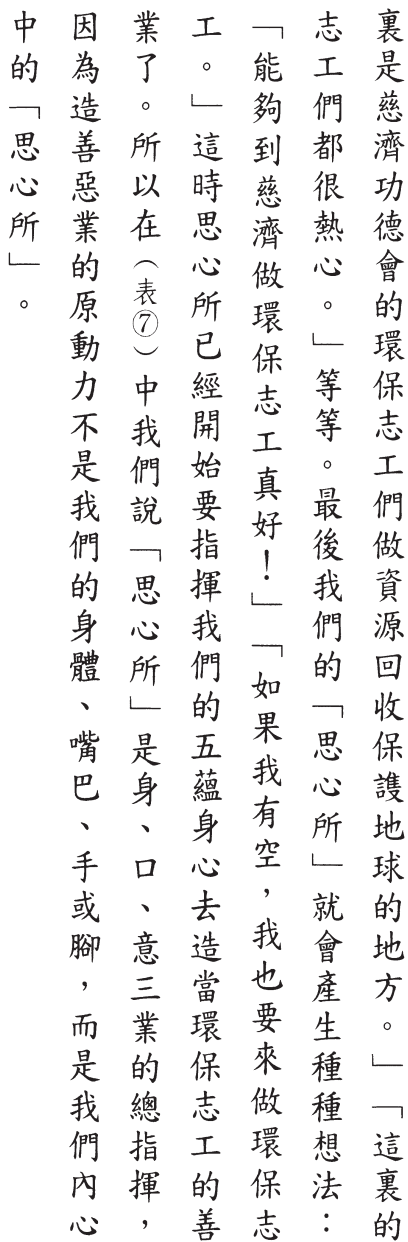 裏是慈濟功德會的環保志工們做資源回收保護地球的地方。」「這裏的
志工們都很熱心。」等等。最後我們的「思心所」就會產生種種想法：
「能夠到慈濟做環保志工真好！」「如果我有空，我也要來做環保志
工。」這時思心所已經開始要指揮我們的五蘊身心去造當環保志工的善
業了。所以在（表⑦）中我們說「思心所」是身、口、意三業的總指揮，
因為造善惡業的原動力不是我們的身體、嘴巴、手或腳，而是我們內心
中的「思心所」。